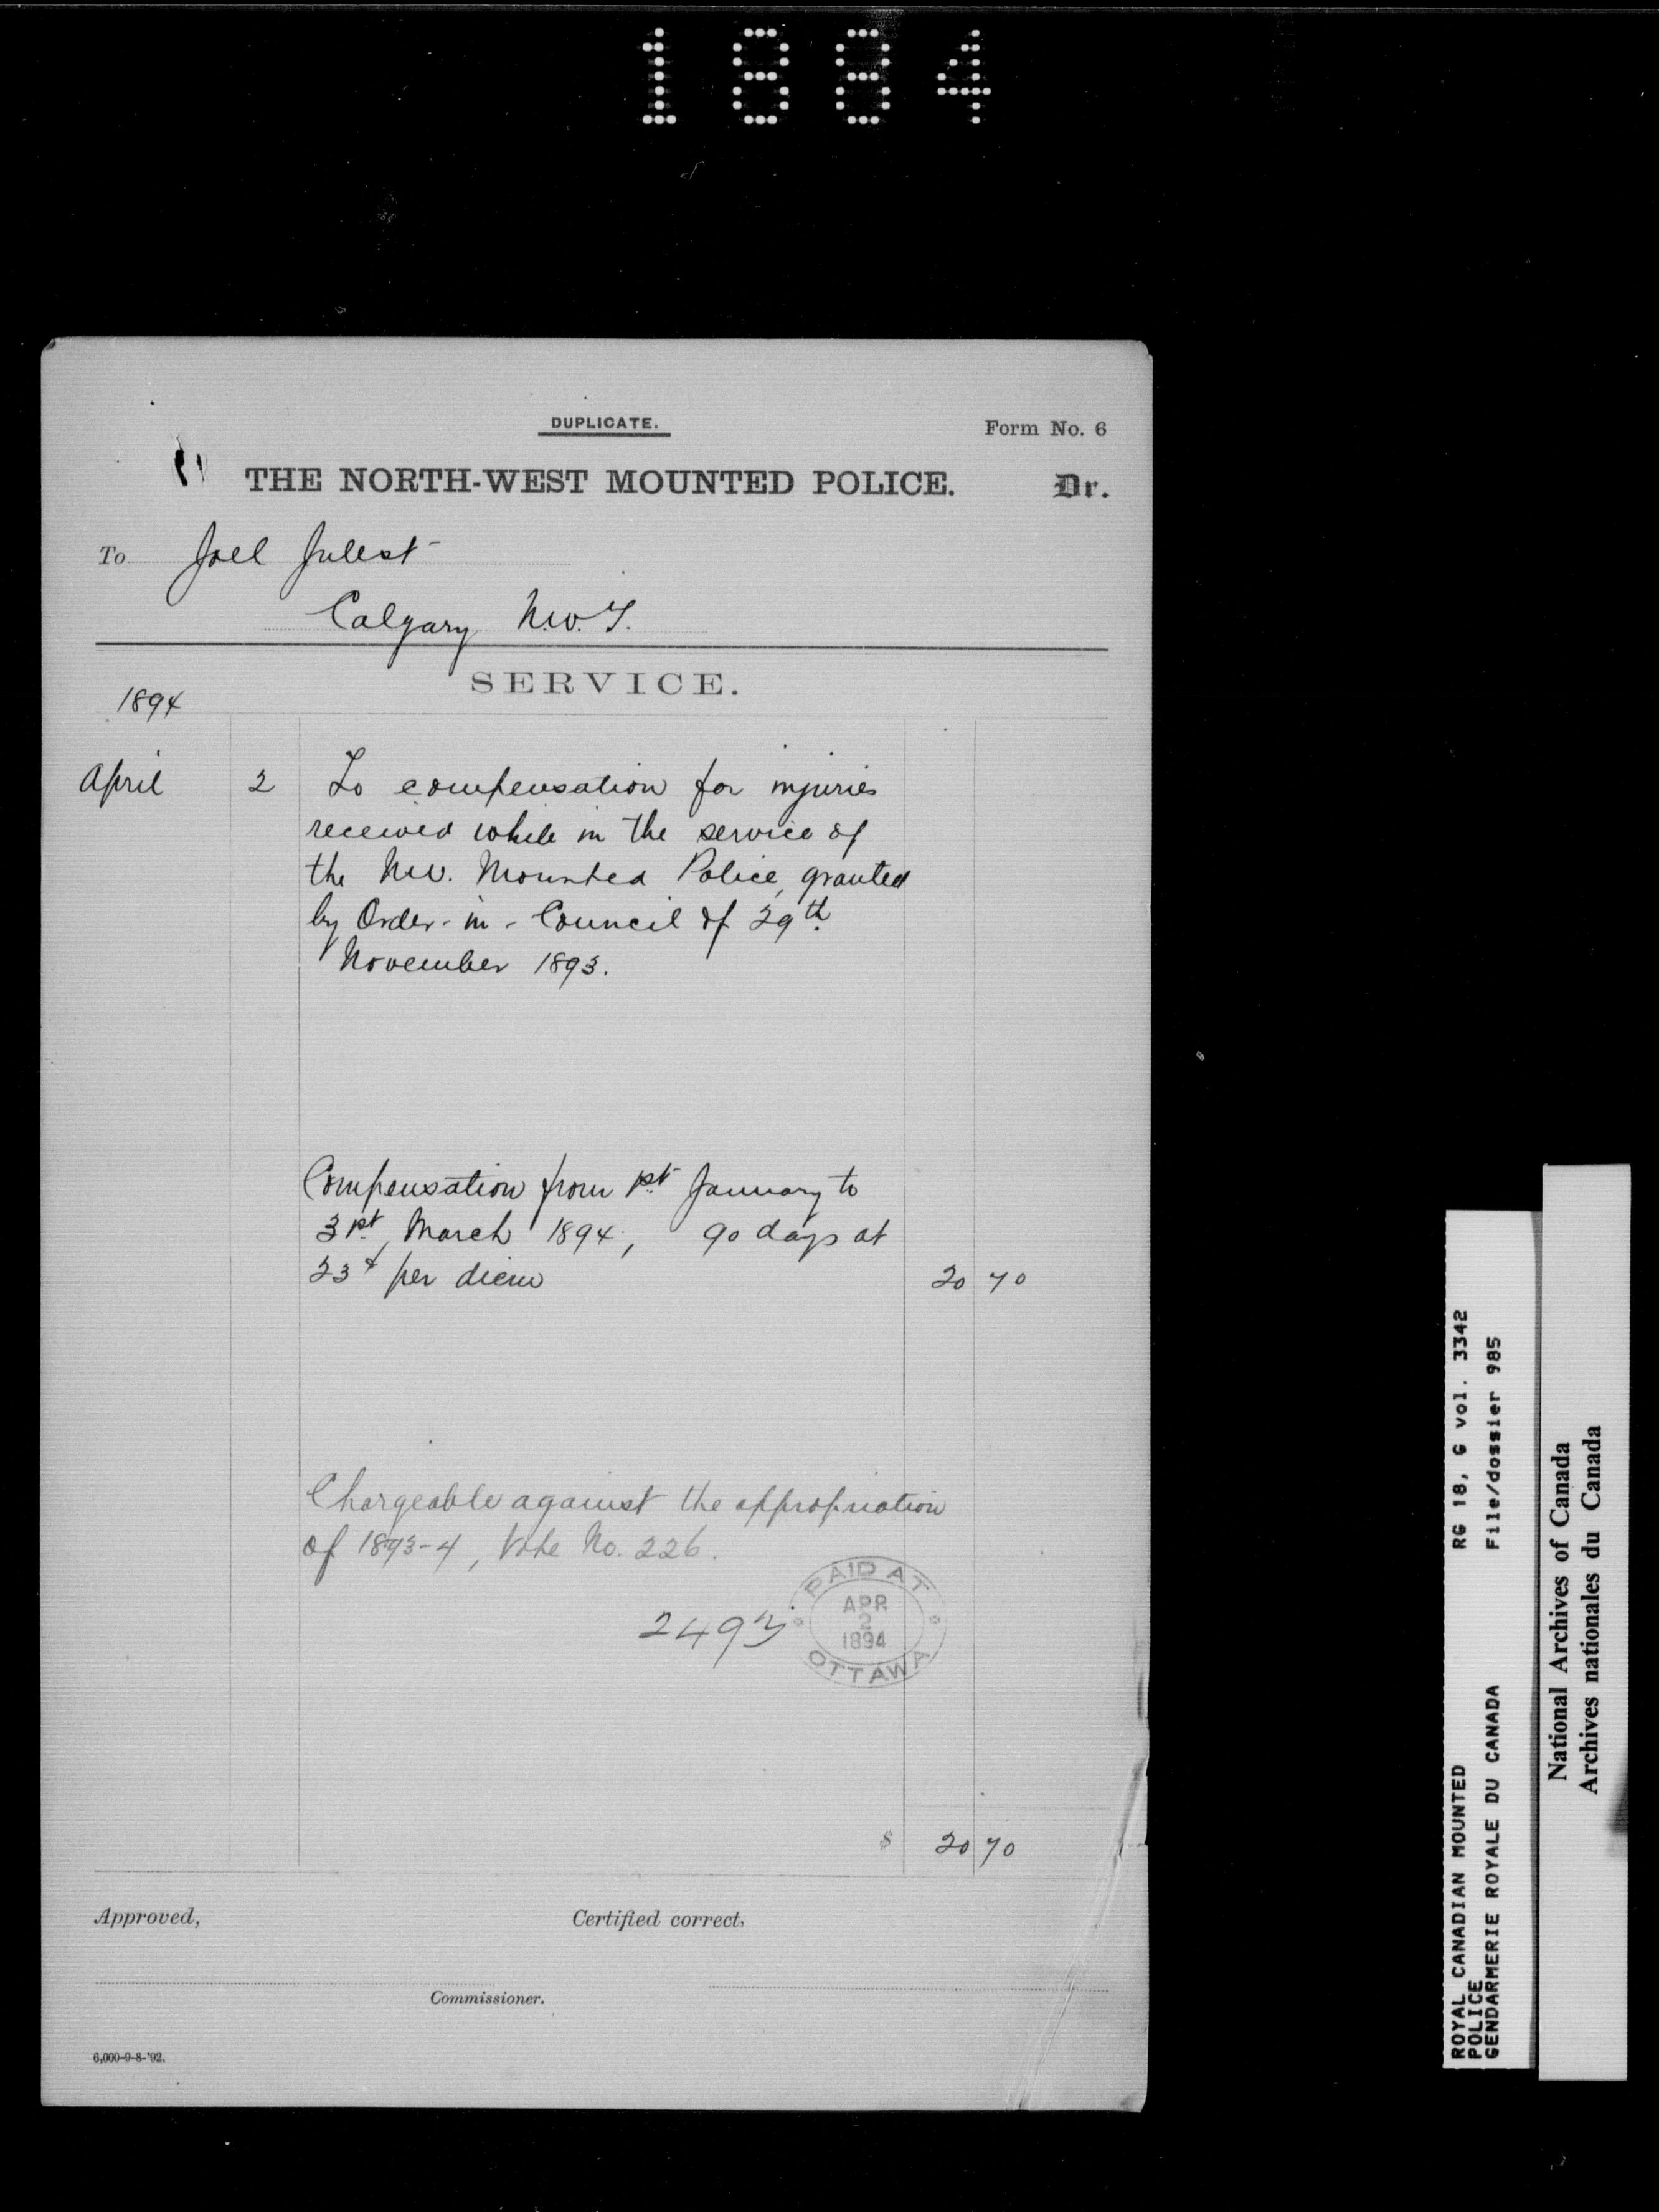 1884
DUPLICATE.
Form No. 6
THE NORTH-WEST MOUNTED POLICE. Dr.
To Joel Julest
Calgary N.W.T.
SERVICE.
1894
April 2 To compensation for injuries
received while in the service of
the N.W. Mounted Police, granted
by Order-in-Council of 29th
November 1893.
Compensation from 1st January to
31st March 1894, 90 days at
23¢ per diem 20 70
Chargeable against the appropriation
of 1893-4, Vote No. 226.
PAID AT
APR
2
1894
OTTAWA
$ 20 70
Approved,
Certified correct,
Commissioner.
6,000-9-8-'92.
ROYAL CANADIAN MOUNTED
POLICE
GENDARMERIE ROYALE DU CANADA
RG 18, G vol. 3342
File/dossier 985
National Archives of Canada
Archives nationales du Canada